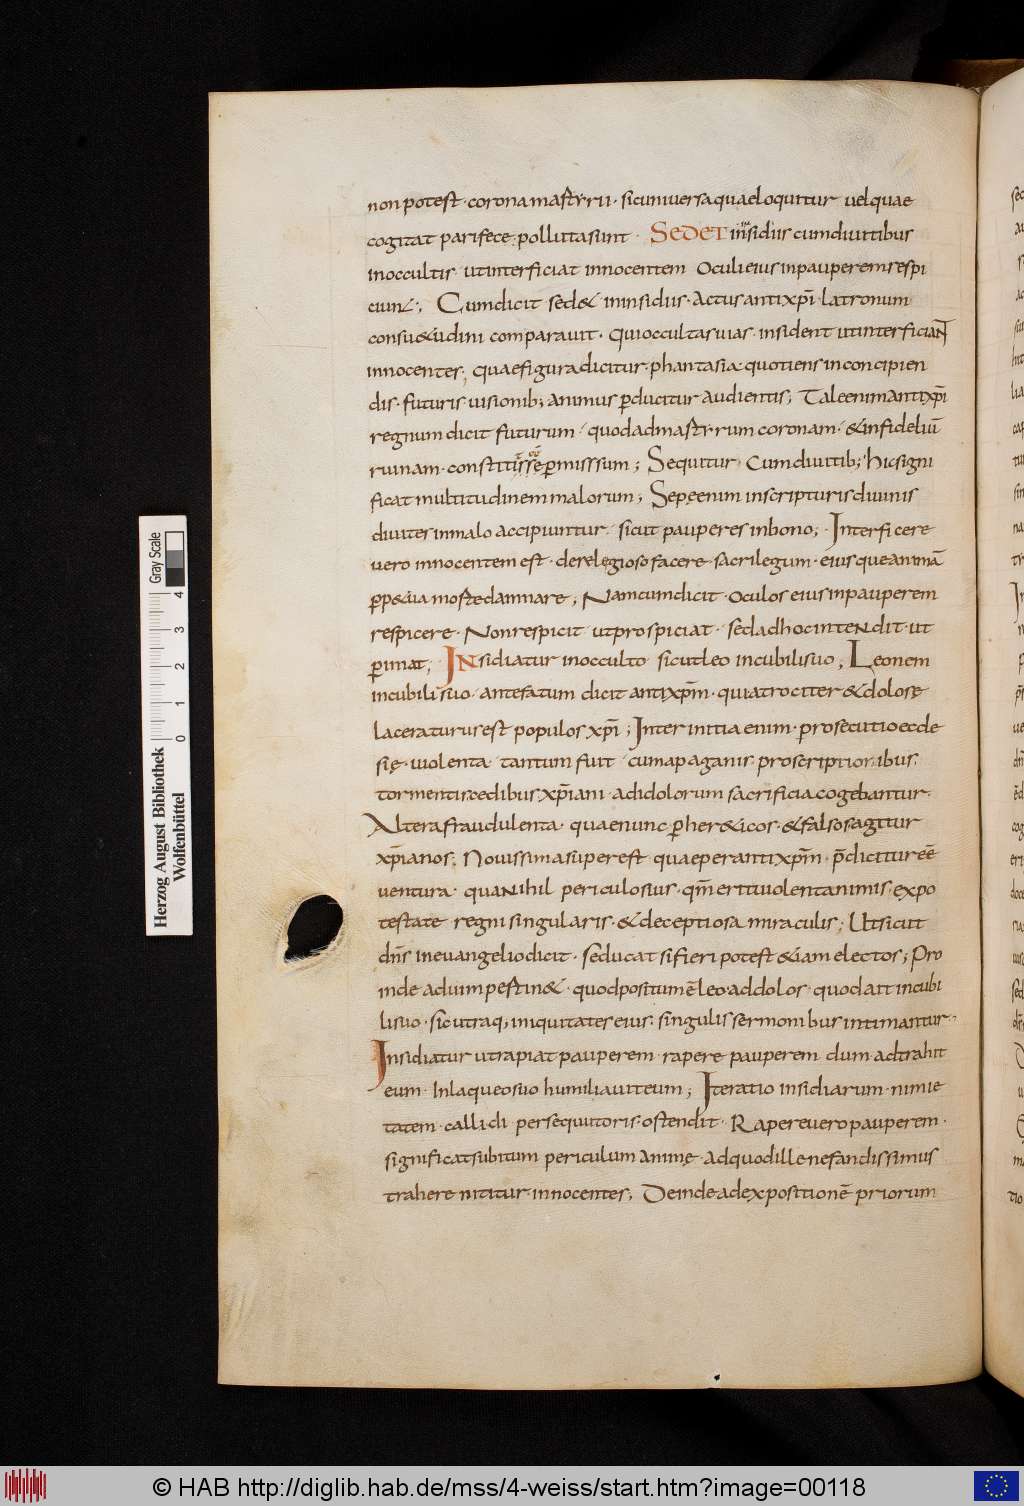 non potest · corona martyrii · sic universa quae loquitur vel quae
cogitat pari fece pollutasunt · SEDET in insidiis cum divitibus
in occultis · ut interficiat innocentem Oculi eius in pauperem respi
ciun&; Cum dicit sed& in insidiis · Actus antixp̄i · latronum
consu&udini comparavit · Qui occultas vias · insident ut interficiaN̄T
innocentes; quae figura dicitur · phantasia · quotiens in concipien
dis · futuris visionib; animus p̄ducitur audientis; Tale enim antixp̄i
regnum dicit futurum · quod ad martyrum coronam · & infideliū
ruinam · constitisse p̄misssum; Sequitur Cum divitib; hic signi
ficat multitudinem malorum; Sepe enim in scripturis divinis
divites in malo accipiuntur · sicut pauperes in bono; Interficere
vero innocentem est · de relegioso facere sacrilegum · eiusque animā
p̄p&ua moste damnare; Nam cum dicit · oculos eius in pauperem
respicere · Non respicit ut prospiciat · sed ad hoc inteNdit · ut
p̄imat; INsidiatur in occulto sicut leo in cubili suo; Leonem
in cubili suo · ante fatum dicit antixp̄m · quia trociter & dolose
laceraturus est populos xp̄i; Inter initia enim · persecutio eccle
sie · violenta tantum fuit cum a paganis proscriptionibus
tormentis cedibus xp̄iani · ad idolorum sacrificia cogebantur ·
Altera fraudulenta · quae nunc p̄ her&icos · & falsos agitur
xp̄ianos; Novissima superest quae per antixp̄m · p̄dicitur eē
ventura · qua Nihil periculosius · qm̄ erit violentanimis · ex po
testate regni singularis · & deceptiosa miraculis; Ut sicut
dn̄s in evangelio dicit · seducat si fieri potest &iam electos; Pro
inde advim pestin& · quod positum ē leo · ad dolos · quod ait in cubi
li suo · sic utraq; iniquitates eius · singulis sermonibus intimantur ·
Insidiatur ut rapiat pauperem · rapere pauperem dum adtrahit
eum · In laqueo suo humiliavit eum; Iteratio insidiarum · nimie
tatem · callidi persequutoris · ostendit · Rapere vero pauperem ·
significat subitum periculum anime · ad quod ille nefandissimus
trahere nititur innocentes; Deinde ad expositionē priorum
Herzog August Bibliothek
Wolfenbüttel
0 1 2 3 4
Gray Scale
© HAB http://diglib.hab.de/mss/4-weiss/start.htm?image=00118